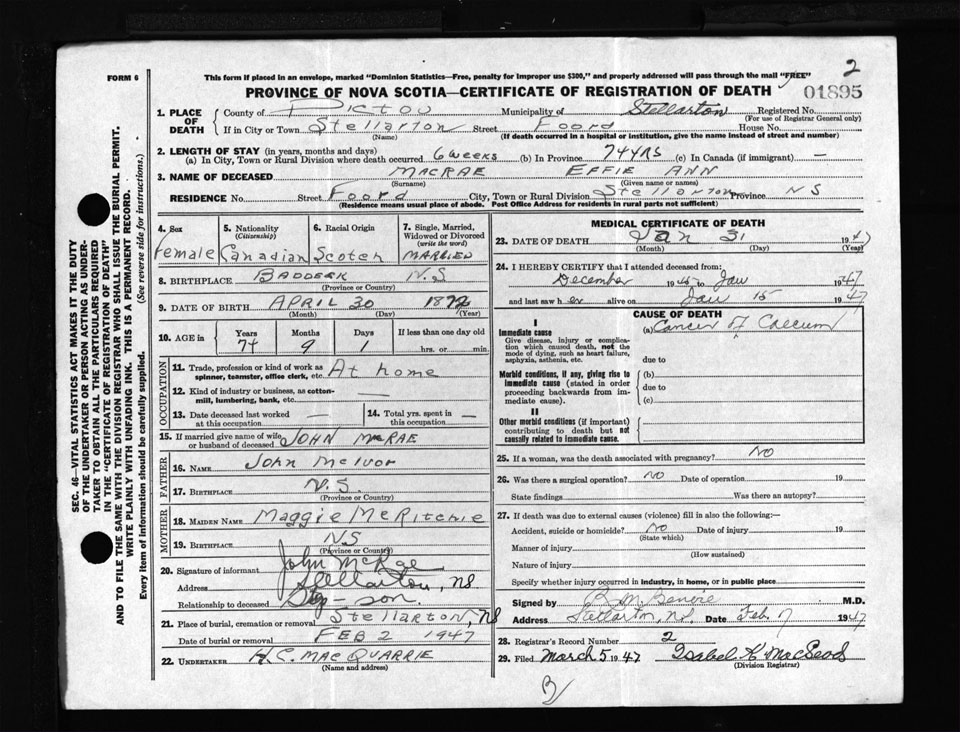 2
FORM 6
This form if placed in an envelope, marked "Dominion Statistics—Free, penalty for improper use $300," and properly addressed will pass through the mail "FREE"
PROVINCE OF NOVA SCOTIA—CERTIFICATE OF REGISTRATION OF DEATH 01895
1. PLACE OF DEATH County of Pictou Municipality of Stellarton Registered No.
(For use of Registrar General only)
If in City or Town Stellarton Street Foord House No.
(Name) (If death occurred in a hospital or institution, give the name instead of street and number)
2. LENGTH OF STAY (in years, months and days)
(a) In City, Town or Rural Division where death occurred 6 weeks (b) In Province 74 YRS (c) In Canada (if immigrant) —
3. NAME OF DECEASED MACRAE EFFIE ANN
(Surname) (Given name or names)
RESIDENCE No. Street Foord City, Town or Rural Division Stellarton Province NS
(Residence means usual place of abode. Post Office Address for residents in rural parts not sufficient)
4. Sex 5. Nationality (Citizenship) 6. Racial Origin 7. Single, Married, Widowed or Divorced (write the word)
Female Canadian Scotch MARRIED
8. BIRTHPLACE BADDECK N.S
(Province or Country)
9. DATE OF BIRTH APRIL 30 1872
(Month) (Day) (Year)
10. AGE in Years Months Days If less than one day old
74 9 1 hrs. or min.
OCCUPATION
11. Trade, profession or kind of work as spinner, teamster, office clerk, etc. At home
12. Kind of industry or business, as cotton-mill, lumbering, bank, etc. —
13. Date deceased last worked at this occupation — 14. Total yrs. spent in this occupation —
15. If married give name of wife or husband of deceased JOHN MACRAE
FATHER
16. NAME John McIvor
17. BIRTHPLACE N.S.
(Province or Country)
MOTHER
18. MAIDEN NAME Maggie McRitchie
19. BIRTHPLACE NS
(Province or Country)
20. Signature of informant John McRae
Address Stellarton, NS
Relationship to deceased Step-son.
21. Place of burial, cremation or removal Stellarton, NS
Date of burial or removal FEB 2 1947
22. UNDERTAKER H.C. MACQUARRIE
(Name and address)
MEDICAL CERTIFICATE OF DEATH
23. DATE OF DEATH Jan 31 1947
(Month) (Day) (Year)
24. I HEREBY CERTIFY that I attended deceased from:
December 1946 to Jan 1947
and last saw her alive on Jan 15 1947
CAUSE OF DEATH
I
Immediate cause (a) Cancer of Caecum
Give disease, injury or complication which caused death, not the mode of dying, such as heart failure, asphyxia, asthenia, etc.
due to
Morbid conditions, if any, giving rise to immediate cause (stated in order proceeding backwards from immediate cause).
(b)
due to
(c)
II
Other morbid conditions (if important) contributing to death but not causally related to immediate cause.
25. If a woman, was the death associated with pregnancy? NO
26. Was there a surgical operation? NO Date of operation 19
State findings Was there an autopsy?
27. If death was due to external causes (violence) fill in also the following:—
Accident, suicide or homicide? No Date of injury 19
(State which)
Manner of injury
(How sustained)
Nature of injury
Specify whether injury occurred in industry, in home, or in public place
Signed by M.D.
Address Stellarton, N.S. Date Feb 7 1947
28. Registrar's Record Number 2
29. Filed March 5 1947 Isabel H MacLeod
(Division Registrar)
SEC. 46—VITAL STATISTICS ACT MAKES IT THE DUTY
OF THE UNDERTAKER OR PERSON ACTING AS UNDER-
TAKER TO OBTAIN ALL THE PARTICULARS REQUIRED
IN THE "CERTIFICATE OF REGISTRATION OF DEATH"
AND TO FILE THE SAME WITH THE DIVISION REGISTRAR WHO SHALL ISSUE THE BURIAL PERMIT.
WRITE PLAINLY WITH UNFADING INK. THIS IS A PERMANENT RECORD.
Every item of information should be carefully supplied. (See reverse side for instructions.)